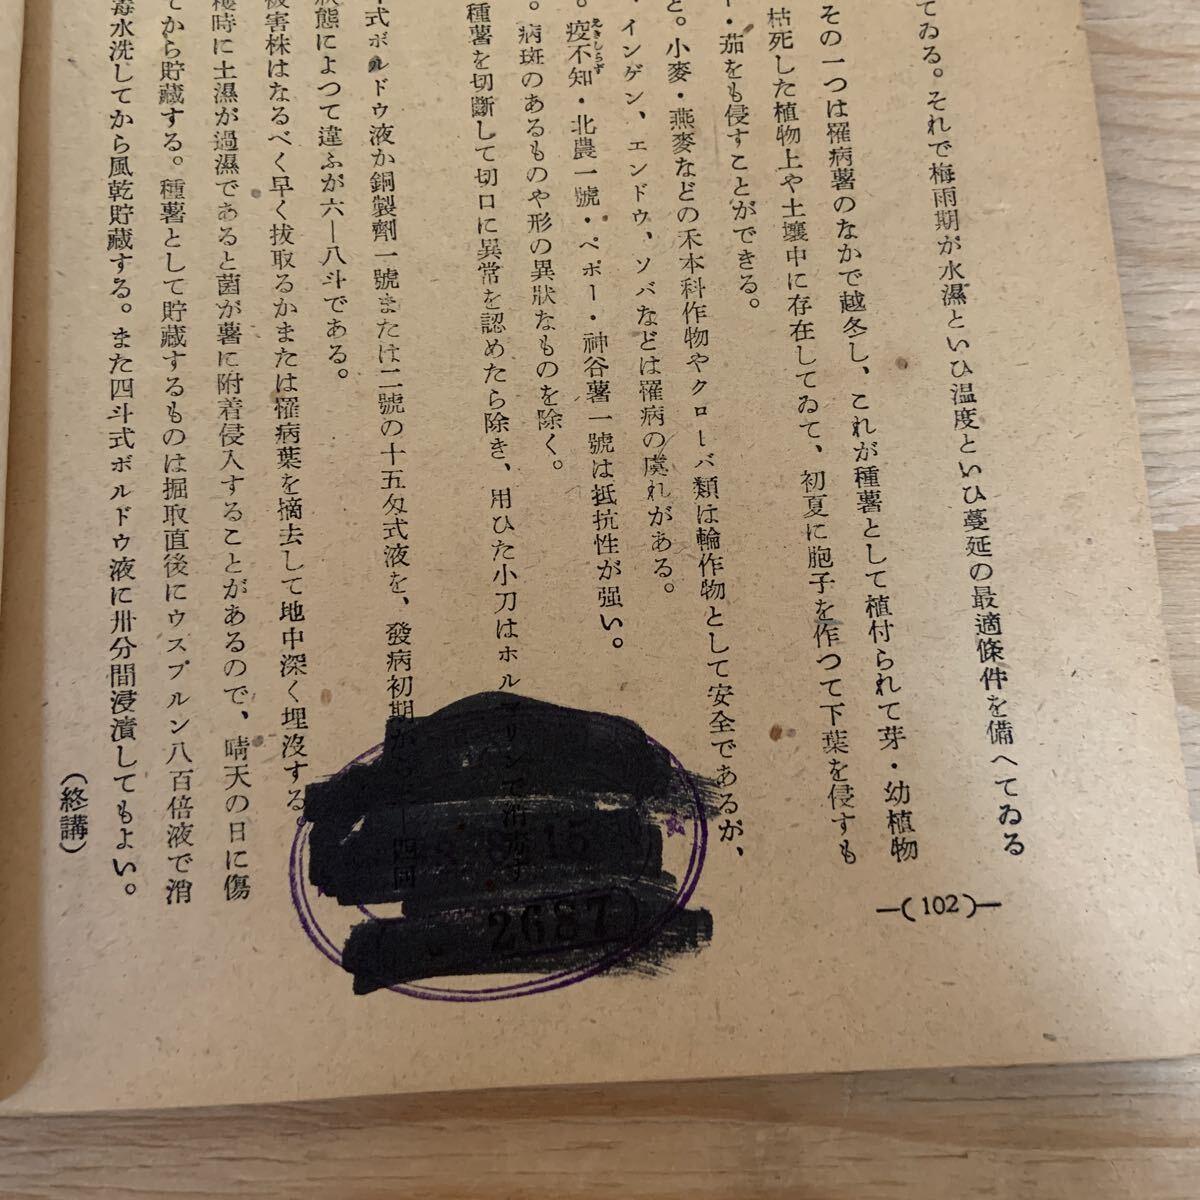 てゐる。それで梅雨期が水濕といひ温度といひ蔓延の最適條件を備へてゐる
その一つは罹病薯のなかで越冬し、これが種薯として植付られて芽・幼植物
枯死した植物上や土壤中に存在してゐて、初夏に胞子を作つて下葉を侵すも
・茄をも侵すことができる。
と。小麥・燕麥などの禾本科作物やクローバ類は輪作物として安全であるが、
インゲン、エンドウ、ソバなどは罹病の虞れがある。
。疫不知・北農一號・ペポー・神谷薯一號は抵抗性が强い。
えきしらず
。病斑のあるものや形の異狀なものを除く。
種薯を切斷して切口に異常を認めたら除き、用ひた小刀はホルマリンで消毒す
式ボルドウ液か銅製劑一號または二號の十五匁式液を、發病初期から 四回
狀態によつて違ふが六―八斗である。
被害株はなるべく早く拔取るかまたは罹病葉を摘去して地中深く埋沒する。
穫時に土濕が過濕であると菌が薯に附着侵入することがあるので、晴天の日に傷
てから貯藏する。種薯として貯藏するものは掘取直後にウスプルン八百倍液で消
毒水洗してから風乾貯藏する。また四斗式ボルドウ液に卅分間浸漬してもよい。
(終講)
—(102)—
15
2687